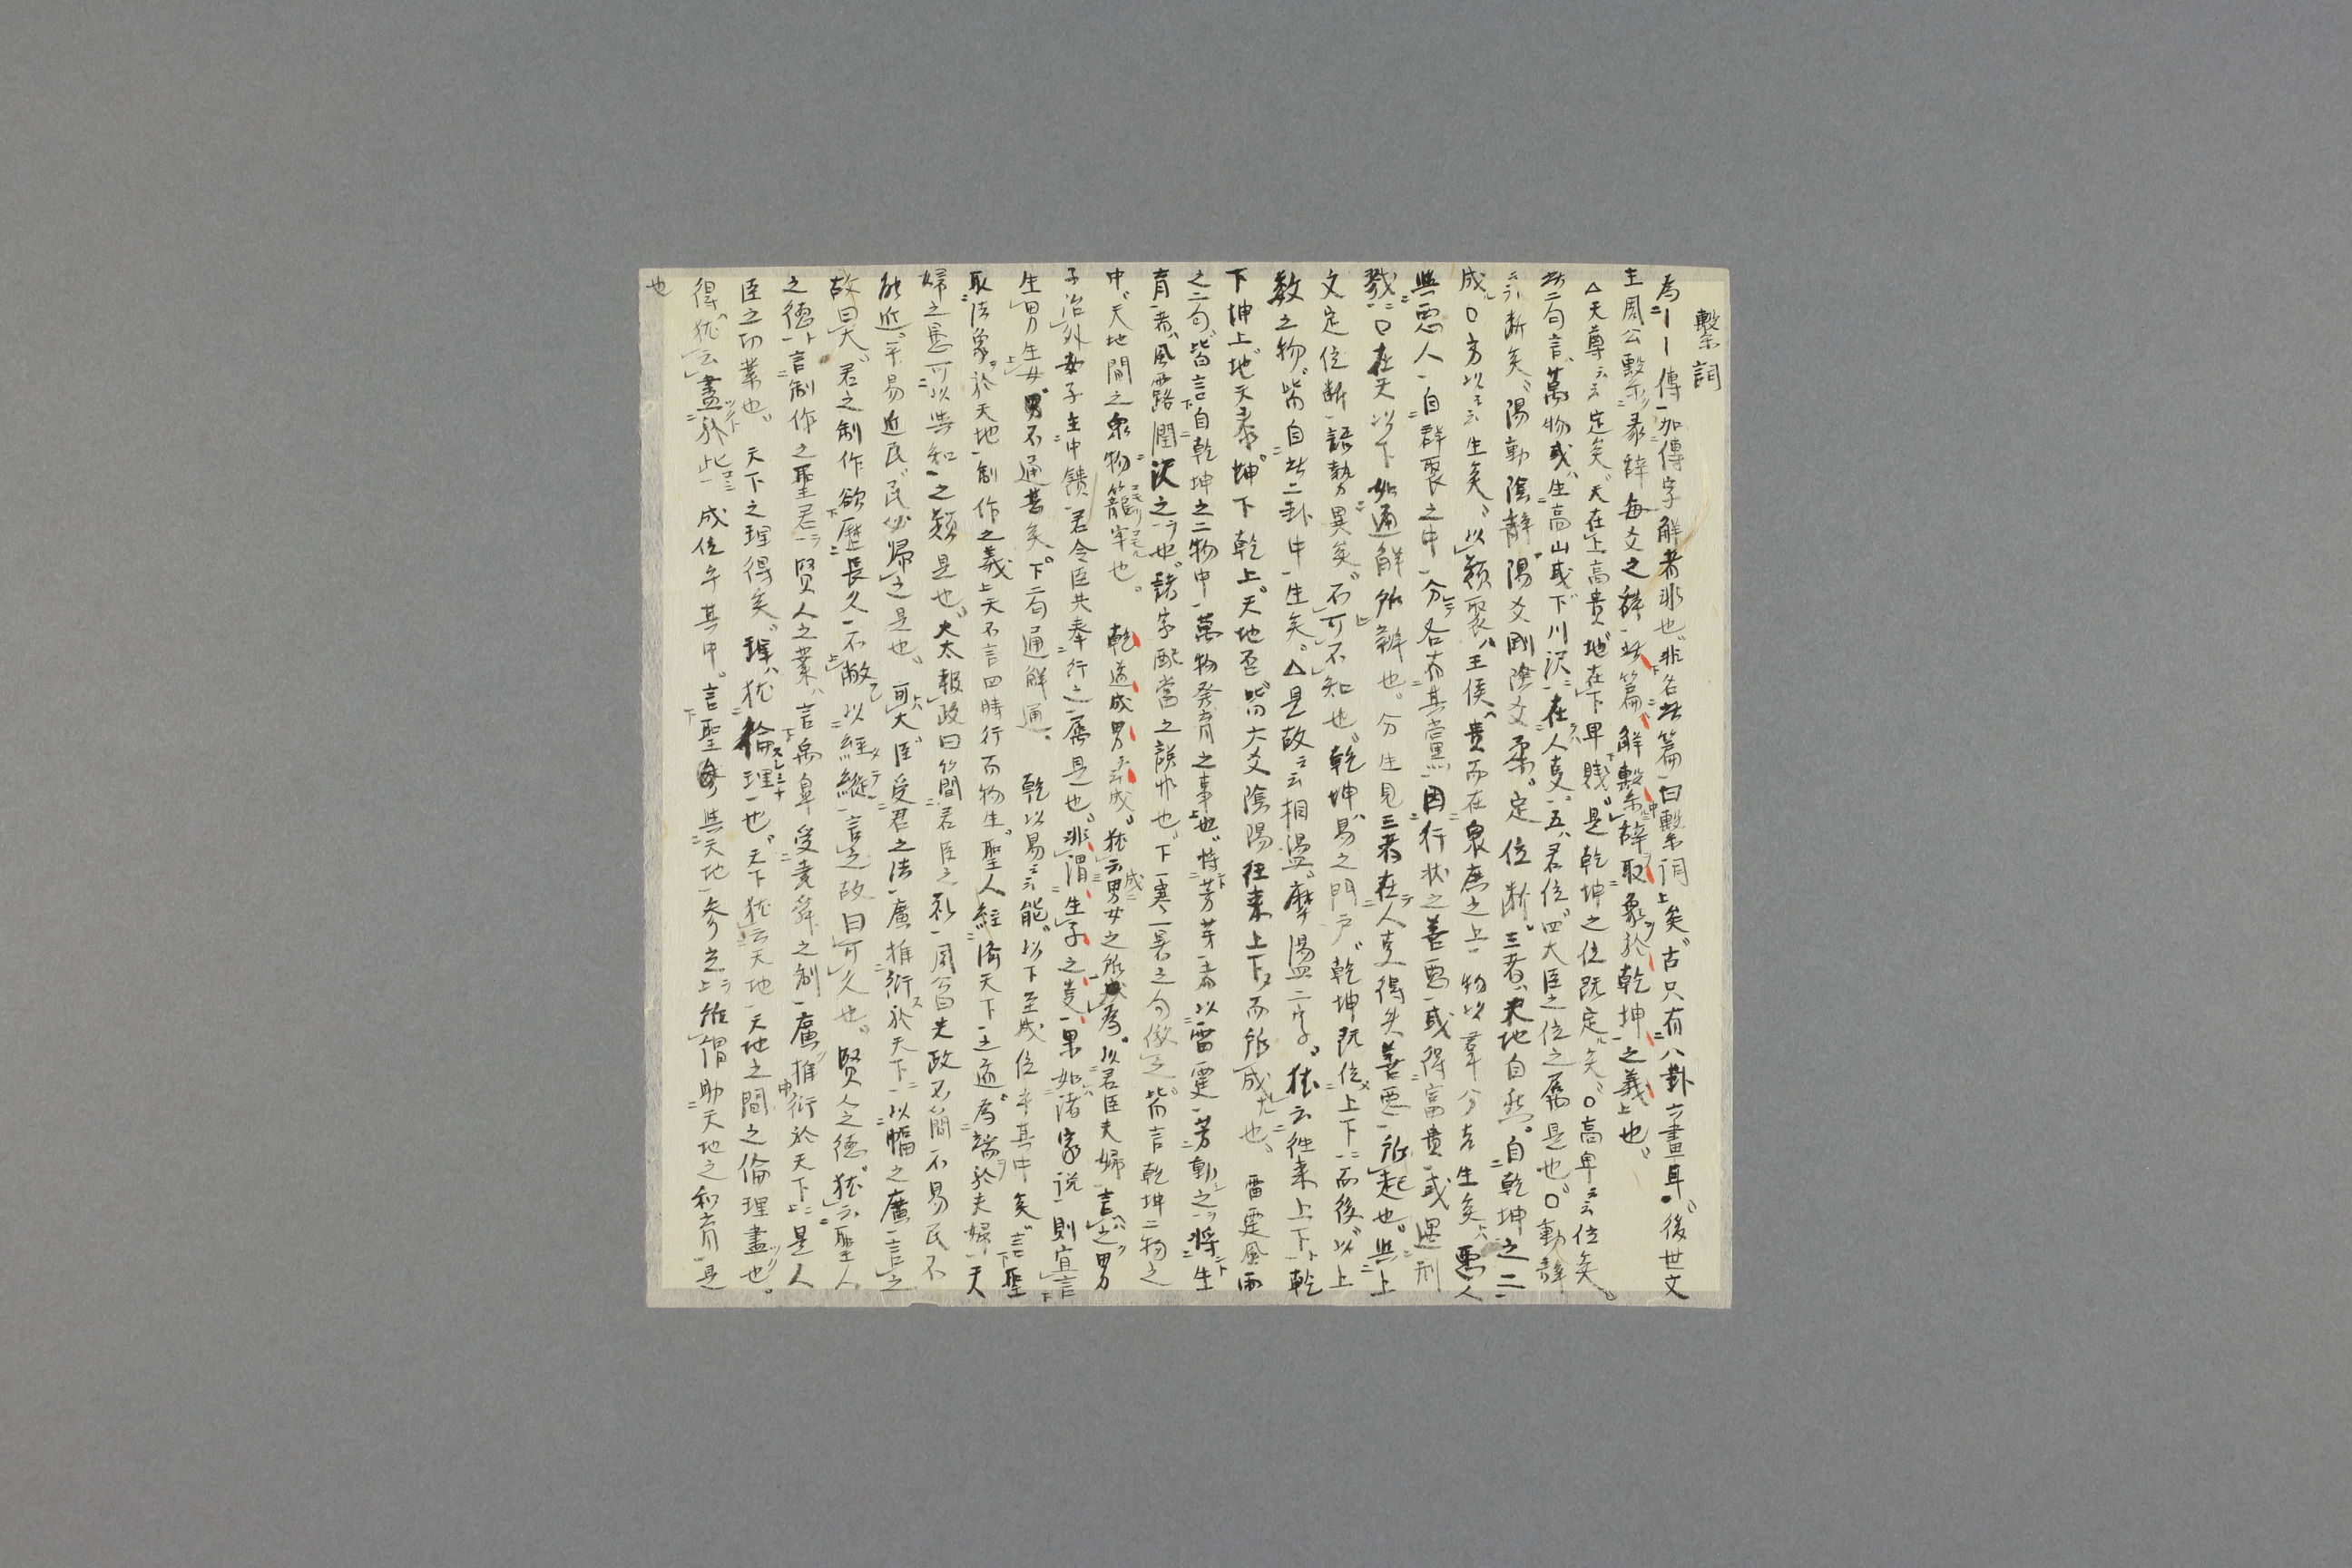 繫詞
為丨丨傳加傳字解者非也非名此篇曰繫詞矣古只有八卦六畫耳後世文
王周公繫彖辭每爻之辭此篇解繫辭取象於乾坤之義也
△天尊云云定矣天在上高貴地在下卑賤是乾坤之位既定矣○高卑云云位矣
此二句言萬物或生高山或下川沢在人支五君位四大臣之位之屬是也○動靜
云云断矣陽動陰靜陽爻剛陰爻柔定位断三者天地自然自乾坤之二
成○方以云云生矣以類聚王侯貴而在眾庶之上物以羣分吉生矣惡人
與惡人自群聚之中分各有其黨因行状之善惡或得富貴或遇刑
戮○在天以下如通解所辨也分生見三者在人支得失善惡所起也與上
文定位断語勢異矣不可不知也乾坤易之門戶乾坤既位上下而後以上
数之物皆自此二卦中生矣△是故云云相盪摩盪二字猶云往来上下乾
下坤上地天泰坤下乾上天地否皆六爻陰陽往来上下而所成也 雷霆風雨
之二句皆言自乾坤之二物中萬物発育之事也時芳芽者以雷霆芳動之将生
育者風露潤沢之也諸字配當之誤也下一寒一暑之句倣之皆言乾坤二物之
中天地間之象物籠牢也 乾道成男云云成猶云男女之所為以君臣夫婦言之男
子治外女子主中饋君令臣共奉行之屬是也非謂生子之支果如諸家説則宜言
生男生女男不通甚矣下二句通解通 乾以易云云能以下至成位乎其中矣言聖
取法象於天地制作之義上天不言四時行而物生聖人経済天下之道為端於夫婦天
婦之愚可以與知之類是也大太報政曰簡君臣之礼周公曰夫政不簡不易民不
能近平易近民民必歸之是也可大臣受君之法廣推衍於天下以幅之廣言之
故曰大君之制作欲歷長久不敝以経縱言之故曰可久也賢人之德猶云聖人
之德言制作之聖君賢人之業言禹皐受堯舜之制廣推衍於天下是人
臣之功業也 天下之理得矣理猶倫理也天下猶云天地天地之間之倫理盡也
得猶云盡於此成位乎其中言聖與天地参立維謂助天地之和育是
也